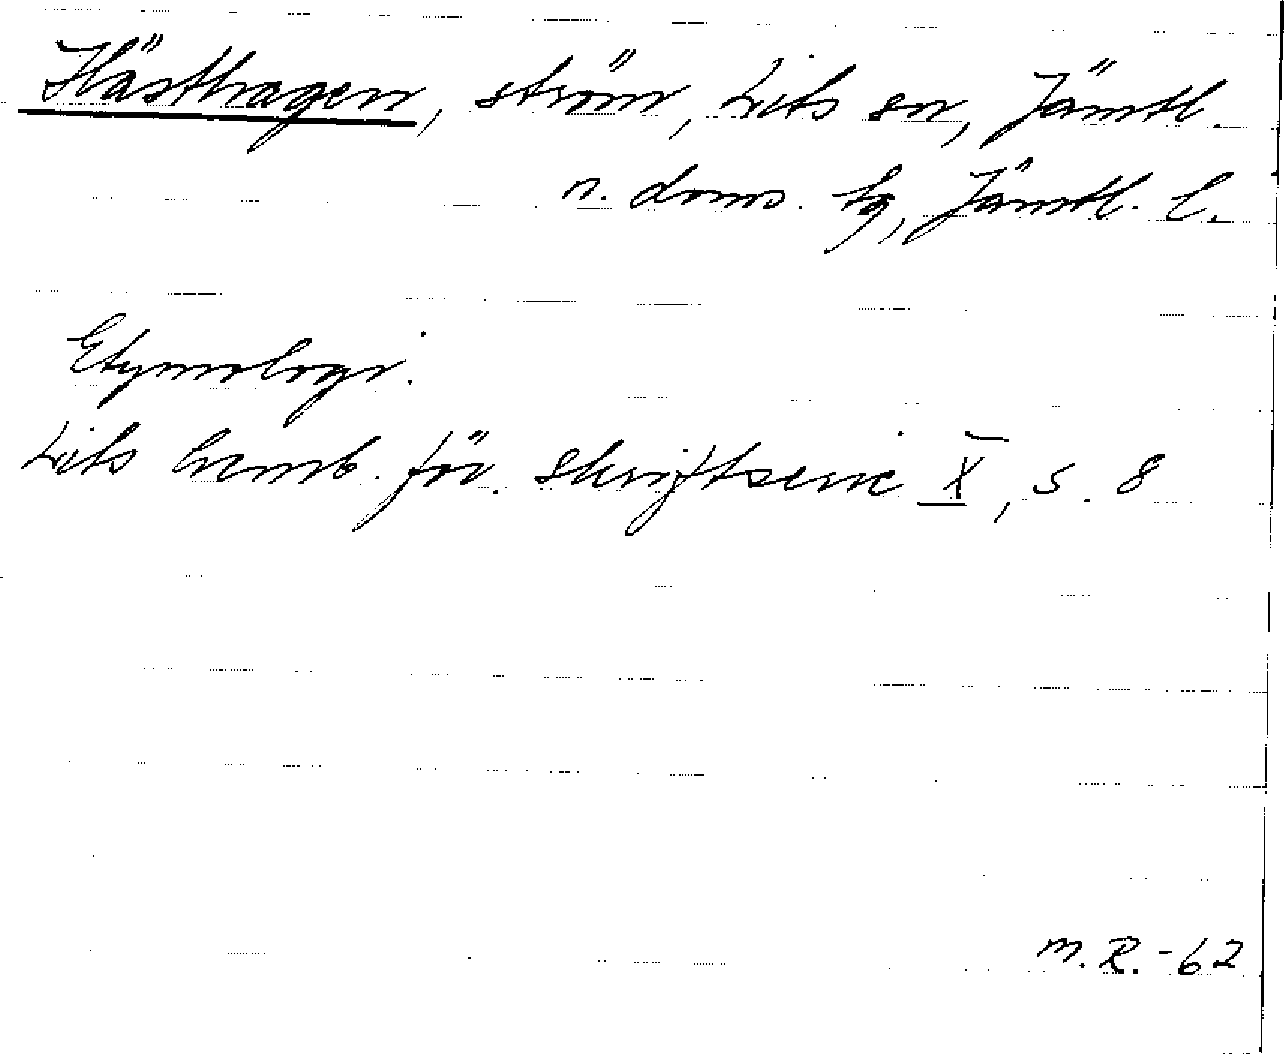 Hästhagen, ström, Lits sn, Jämtl.
n. doms. tg, Jämtl. l.
Etymologi.
Lits hemb. för. skriftserie X, s. 8
M.R.-62